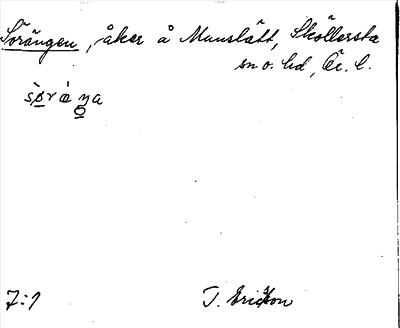 Sörängen, åker å Mauslätt, Sköllersta
sn o. hd, Ör. l.
7:1
J. Ericson